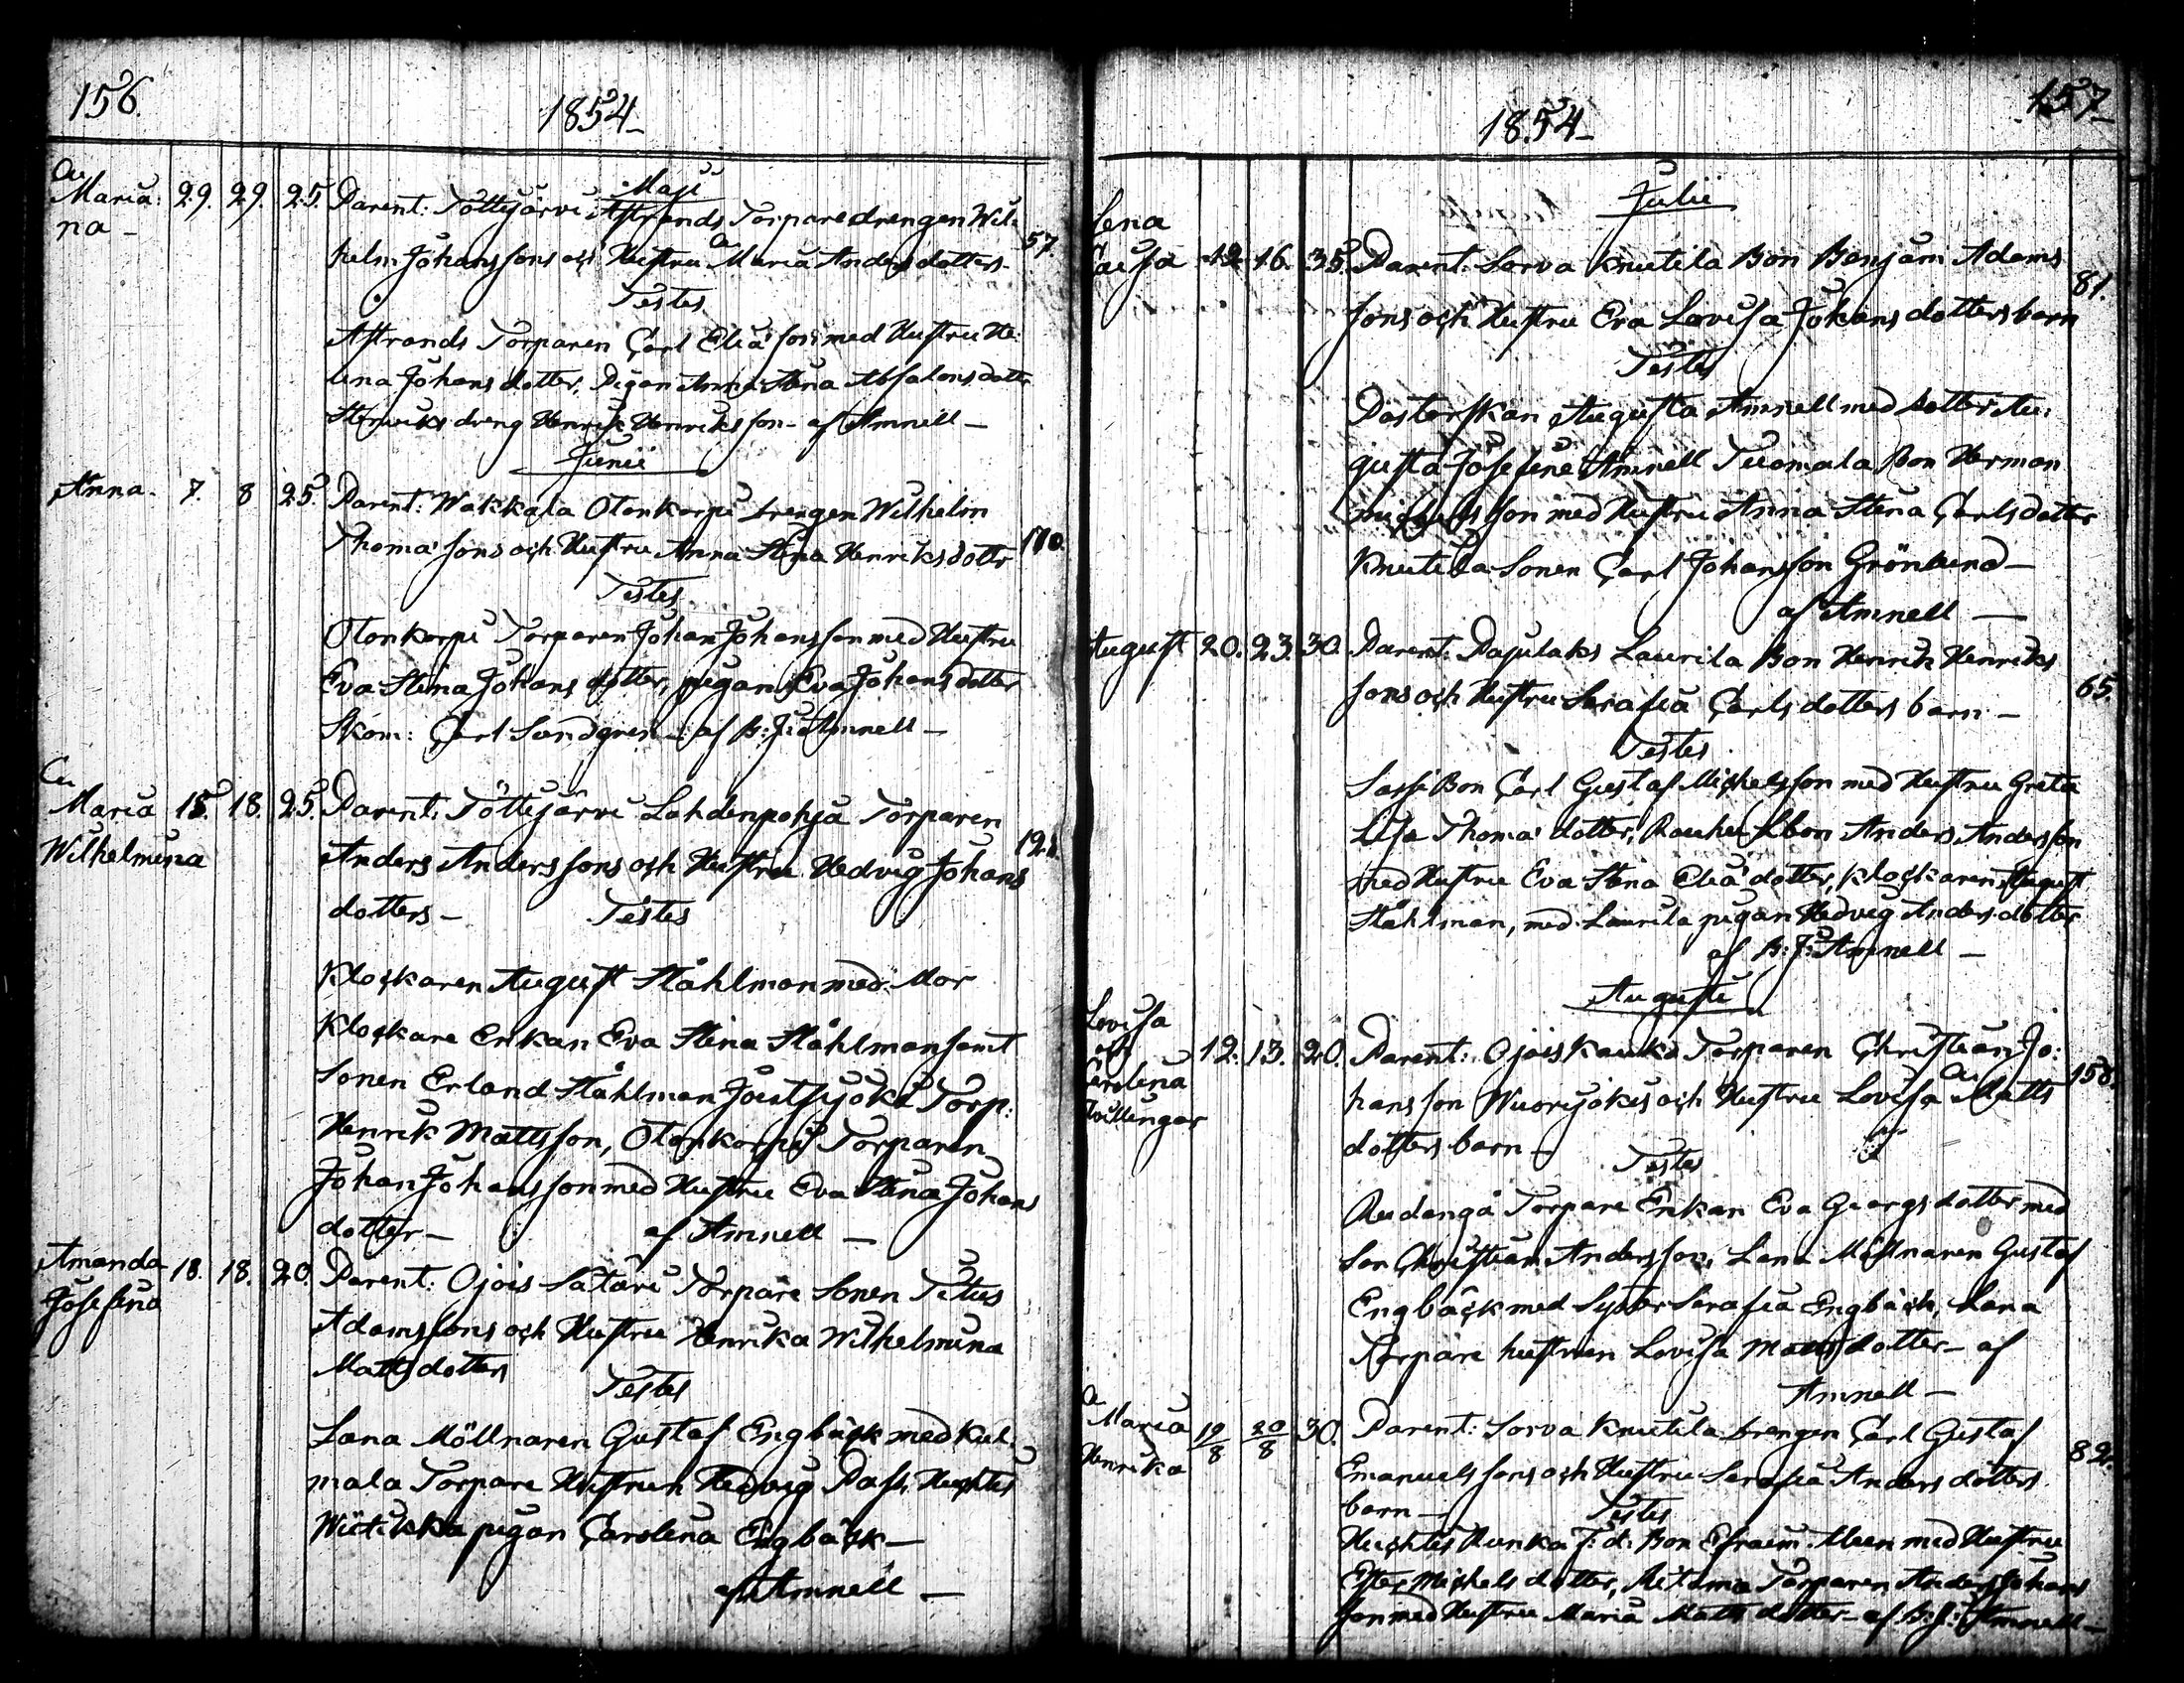 156.
1854_
Maji
Maria: 29. 29. 25. Parent: Töttijärvi Astrands Torparedrengen Wil-
na_
helm Johanssons och Hustru Maria Andersdotters_ 57.
Testes
Astrands Torparen Carl Elia'son med Hustru He-
lena Johansdotter, Pigan Anna Stina Absalonsdotter
dreng Henrik Henriksson_ af Amnell_
Junii
Anna. 7. 8 25. Parent: Wakkala Otonkorpi drengen Wilhelm
Thoma'sons och Hustru Anna Stina Henriksdottr 170.
Testes
Otonkorpi Torparen Johan Johansson med Hustru
Eva Stina Johansdotter, pigan Eva Johansdotter
Skom: Carl Sundgren_ af B: J: Amnell_
Maria 15. 18. 25. Parent: Töttijärvi Lahdenpohja Torparen
Wilhelmina
Anders Anderssons och Hustru Hedvig Johans
dotters_ Testes
Klockaren August Ståhlman med Mor
Klockare Enkan Eva Stina Ståhlman samt
Sonen Erland Ståhlman Torp:
Henrik Mattsson, Otonkorpi Torparen
Johan Johansson med Hustru Eva Stina Johans
dotter_ af Amnell_
Amanda 18. 18. 20. Parent: Ojois Satari Torpare Sonen Titus
Josefina
Adamssons och Hustru Henrika Wilhelmina
Mattsdotters
Testes
Lana Möllnaren Gustaf Engbäck med Kul-
mala Torpare Hustrun Hedvig
pigan Carolina Engbäck_
af Amnell_
157_
1854_
Julii
Lena
Caisa 12 16. 35. Parent: Sorva Knutila Bon Benjam Adams 81.
sons och Hustru Eva Lovisa Johansdotters barn
Testes
Pastorskan Augusta Amnell med dotter Au-
gusta Josefine Amnell Tuomala Bon Herman
Michelsson med Hustru Anna Stina Carlsdotter
Knutila Sonen Carl Johansson Grönlund_
af Amnell_
August 20. 23. 30. Parent: Pajulaks Laurila Bon Henrik Henriks
sons och Hustru Serafia Carlsdotters barn_ 65.
Testes
Sassi Bon Carl Gustaf Michelsson med Hustru Greta
Lisa Thoma'dotter, Bon Anders Andersson
med Hustru Eva Stina Elia'dotter, Klockaren August
Ståhlman, med Laurila pigan Hedvig Andersdotter
af B: J: Amnell_
Augusti
Lovisa
och 12. 13. 20. Parent: Ojois Kauko Torparen Christian Jo-
Carolina
hansson Wuorijokis och Hustru Lovisa Matts
Tvillingar
dotters barn_
Testes
Torpare Enkan Eva Georgsdotter med
Son Christian Andersson, Lana Möllnaren Gustaf
Engbäck med Syster Serafia Engbäck, Lana
Torpare hustrun Lovisa Mattsdotter_ af
Amnell_
Maria 19/8 20/8 30. Parent: Sorva Knutila drengen Carl Gustaf
Henrika
Emanuelssons och Hustru Serafia Anders dotters 82.
barn_
Testes
F: d: Bon Efraim med Hustru
Ester Michelsdotter, Torparen Anders Johans
son med Hustru Maria Matts dotter_ af B: J: Amnell_